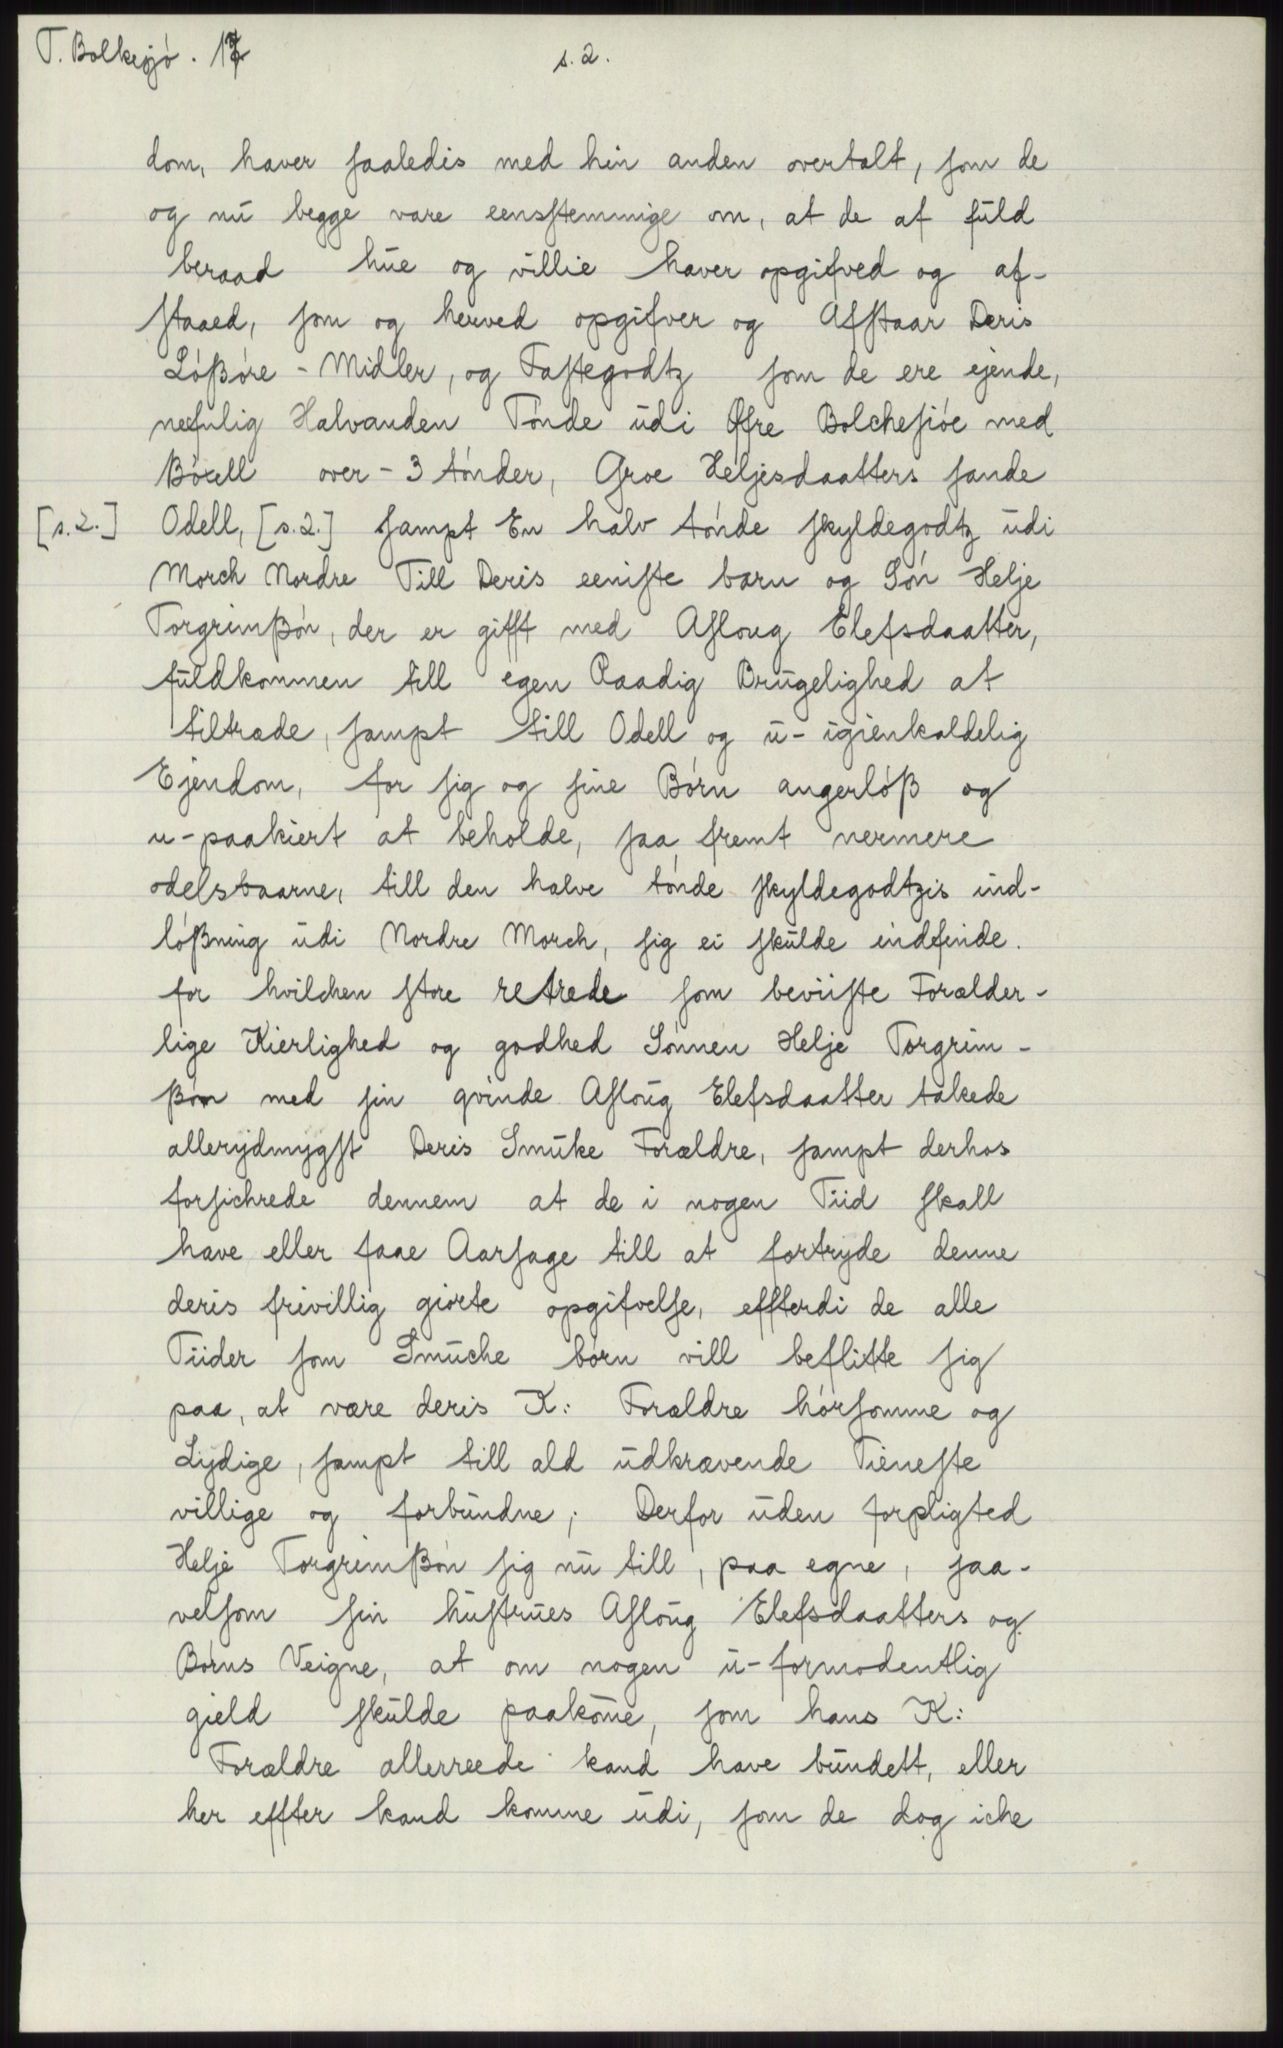 T. Bolkesjó. 17
s. 2.
dom, haver saaledis med hin anden overtalt, som de
og nu begge vare eenstemmige om, at de af fuld
beraad hue og villie haver opgifved og af-
staaed, som og herved opgifver og Afstaar Deris
Lóßóre - Midler, og Fastegodtz som de ere ejende,
nefnlig Halvanden Tónde udi Øfre Bolchesióe med
Bóxell over - 3 tónder, Groe Heljesdaatters sande
[s. 2.] Odell, [s. 2.] sampt En halv tónde skyldegodtz udi
Morch Nordre Till Deris eeniste barn og Són Helje
Torgrimßón, der er gifft med Asloug Elefsdaatter,
fuldkommen till egen Raadig Brugelighed at
tiltræde, sampt till Odell og u-igienkaldelig
Ejendom, for sig og sine Bórn angerlóß og
u-paakiert at beholde, saa fremt nermere
odelsbaarne, till den halve tónde skyldegodtzis ind-
lóßning udi Nordre Morch, sig ei skulde indfinde.
for hvilchen store retrede som beviiste Forælder-
lige Kierlighed og godhed Sónnen Helje Torgrim-
ßón med sin qvinde Asloug Elefsdaatter takede
allerydmygst Deris Smuke Forældre, sampt derhos
forsichrede dennem at de i nogen Tiid skall
have eller faae Aarsage till at fortryde denne
deris frivillig giorte opgifvelse, effterdi de alle
Tiider som Smuche bórn vill beflitte sig
paa, at være deris K: Forældre hórsomme og
Lydige, sampt till ald udkrævende Tieneste
villige og forbundne; Derfor uden forpligted
Helje Torgrimßón sig nu till, paa egne, saa-
velsom sin hustrues Asloug Elefsdaatters og
Bórns Veigne, at om nogen u-formodentlig
gield skulde paakom̄e, som hans K:
Forældre allerreede kand have bundett, eller
her effter kand komme udi, som de dog iche